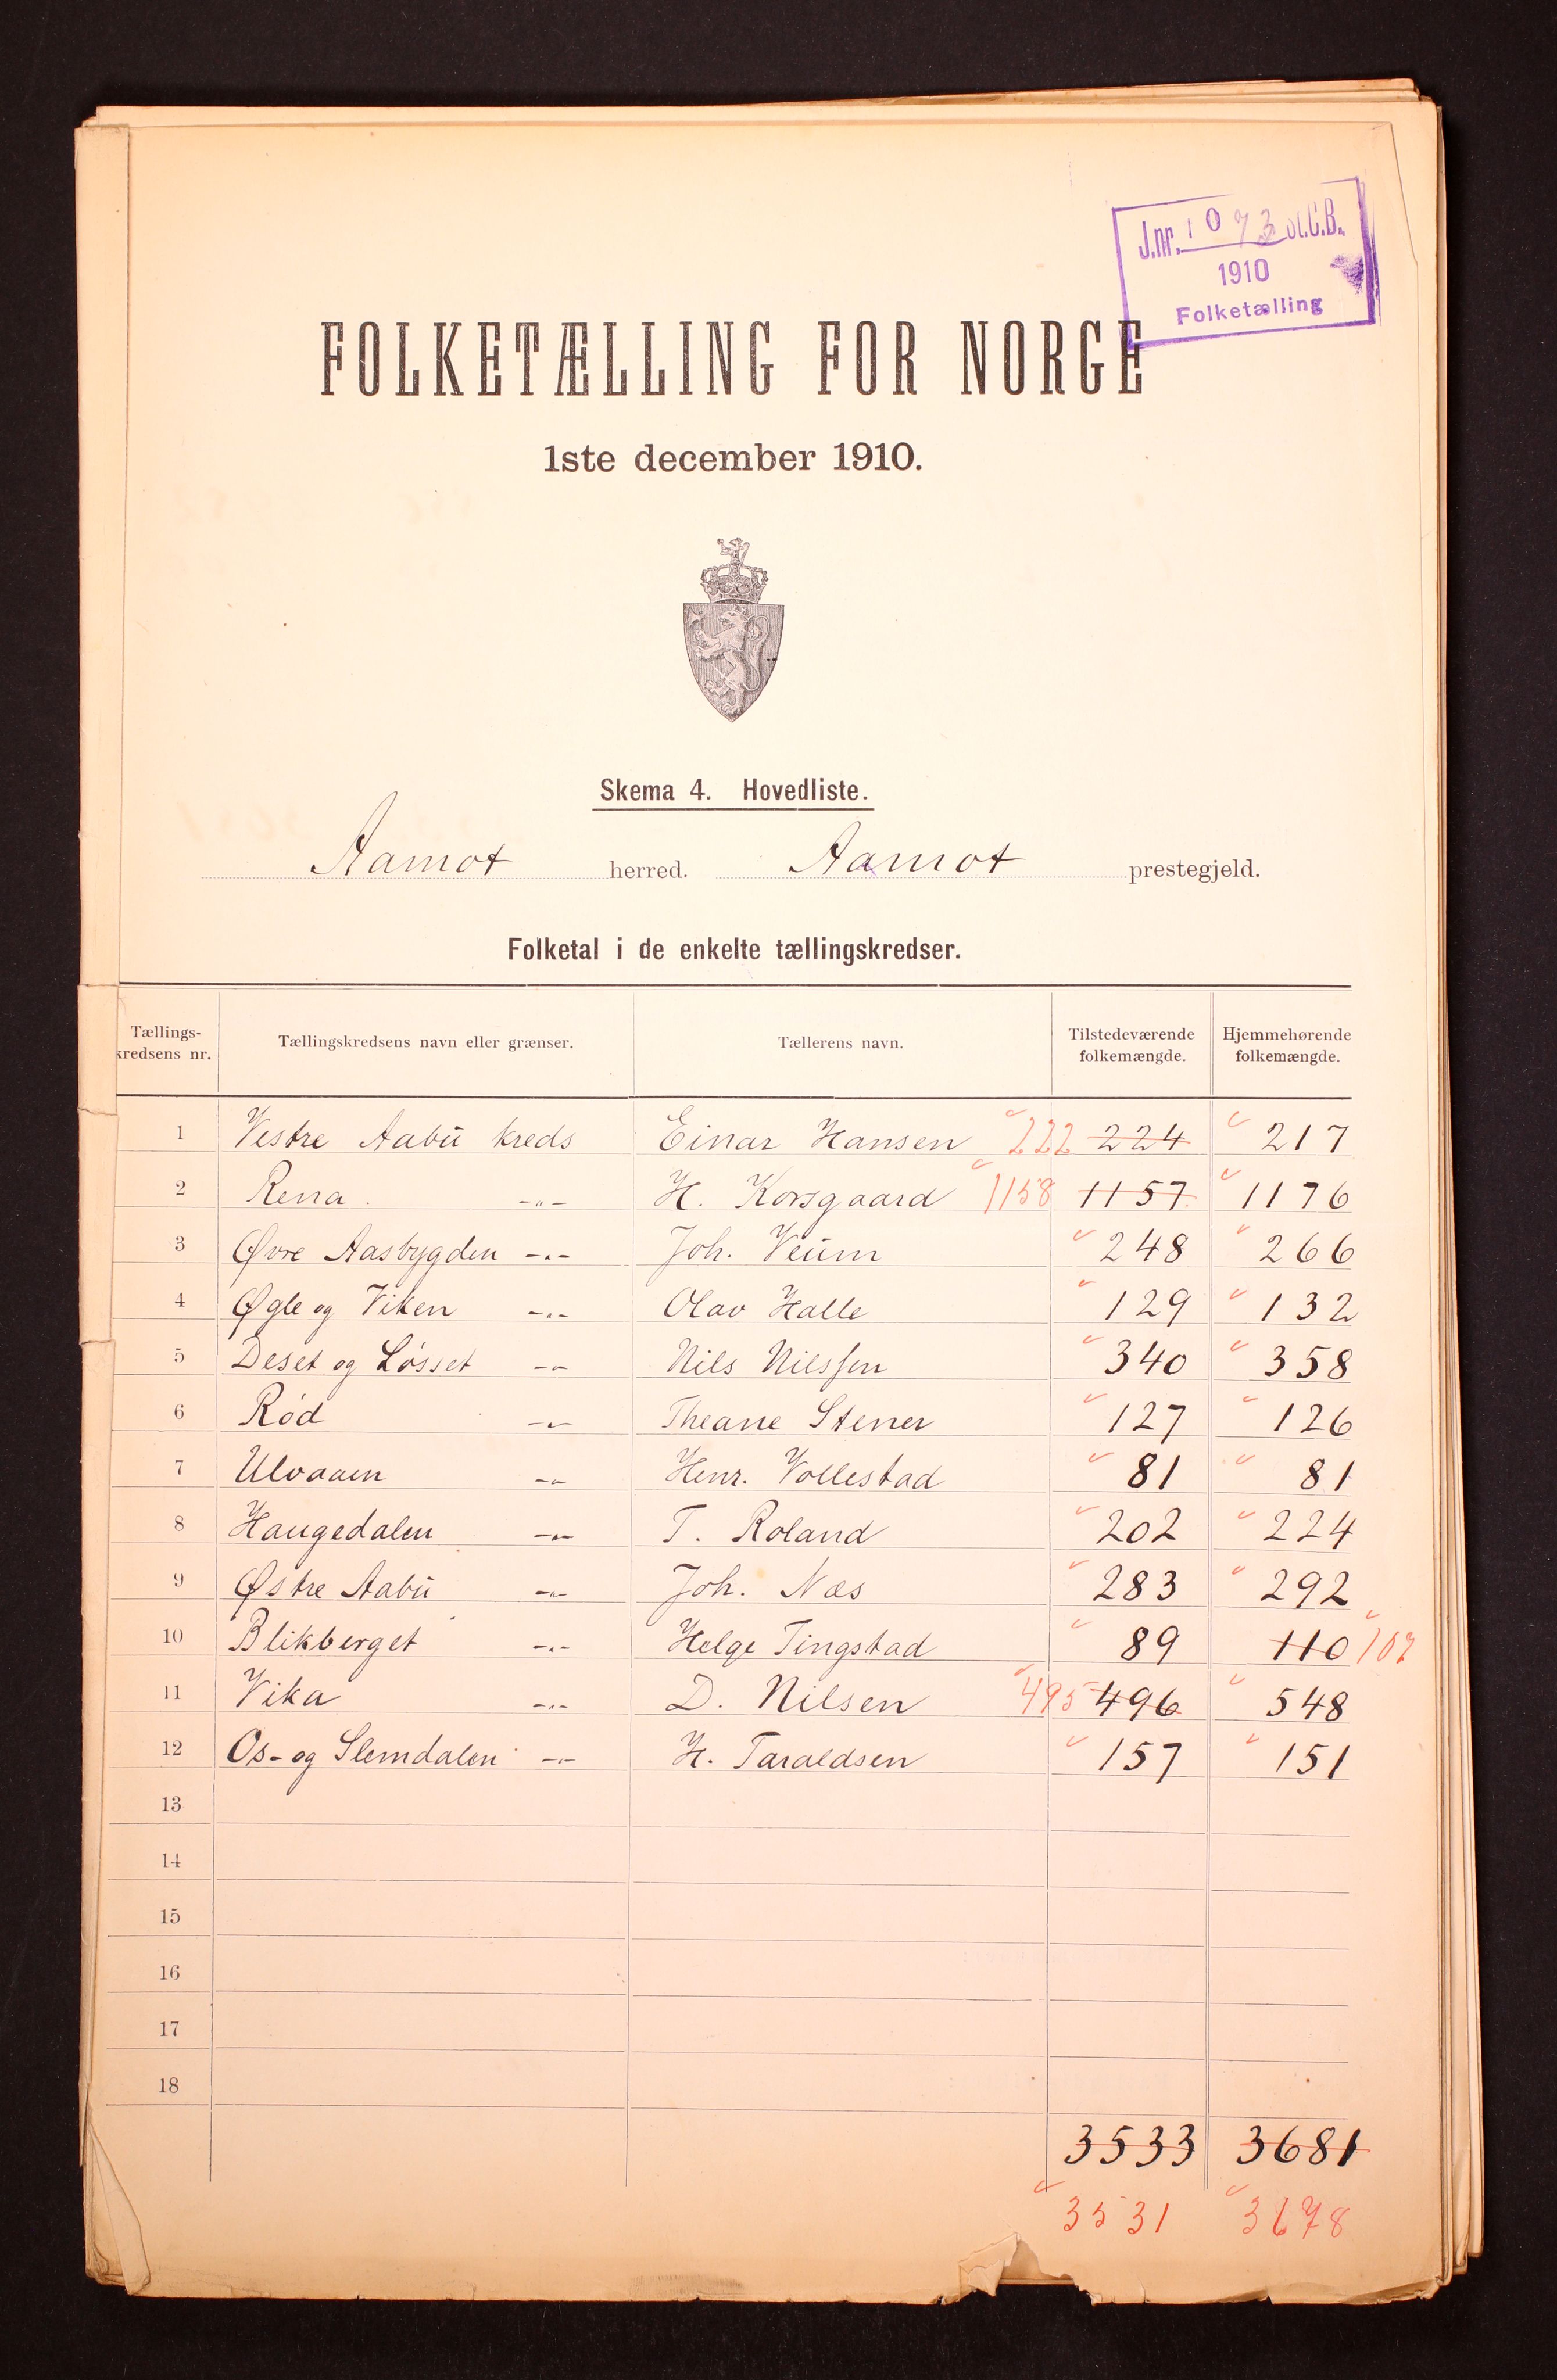 J.nr. 1073 St.C.B.
1910
Folketælling
FOLKETÆLLING FOR NORGE
1ste december 1910.
Skema 4. Hovedliste.
Aamot herred. Aamot prestegjeld.
Folketal i de enkelte tællingskredser.
Tællings-kredsens nr. Tællingskredsens navn eller grænser. Tællerens navn. Tilstedeværende folkemængde. Hjemmehørende folkemængde.
1 Vestre Aabu kreds Einar Hansen 222 224 217
2 Rena -"- H. Korsgaard 1158 1157 1176
3 Øvre Aasbygden -"- Joh. Veum 248 266
4 Øgle og Viken -"- Olav Halle 129 132
5 Deset og Løsset -"- Nils Nilssen 340 358
6 Rød -"- Theane Stener 127 126
7 Ulvaaen -"- Henr. Vollestad 81 81
8 Haugedalen -"- T. Roland 202 224
9 Østre Aabu -"- Joh. Næs 283 292
10 Blikberget -"- Helge Tingstad 89 110 107
11 Vika -"- D. Nilsen 495 496 548
12 Os- og Slemdalen -"- H. Taraldsen 157 151
13
14
15
16
17
18
3533 3681
3531 3678